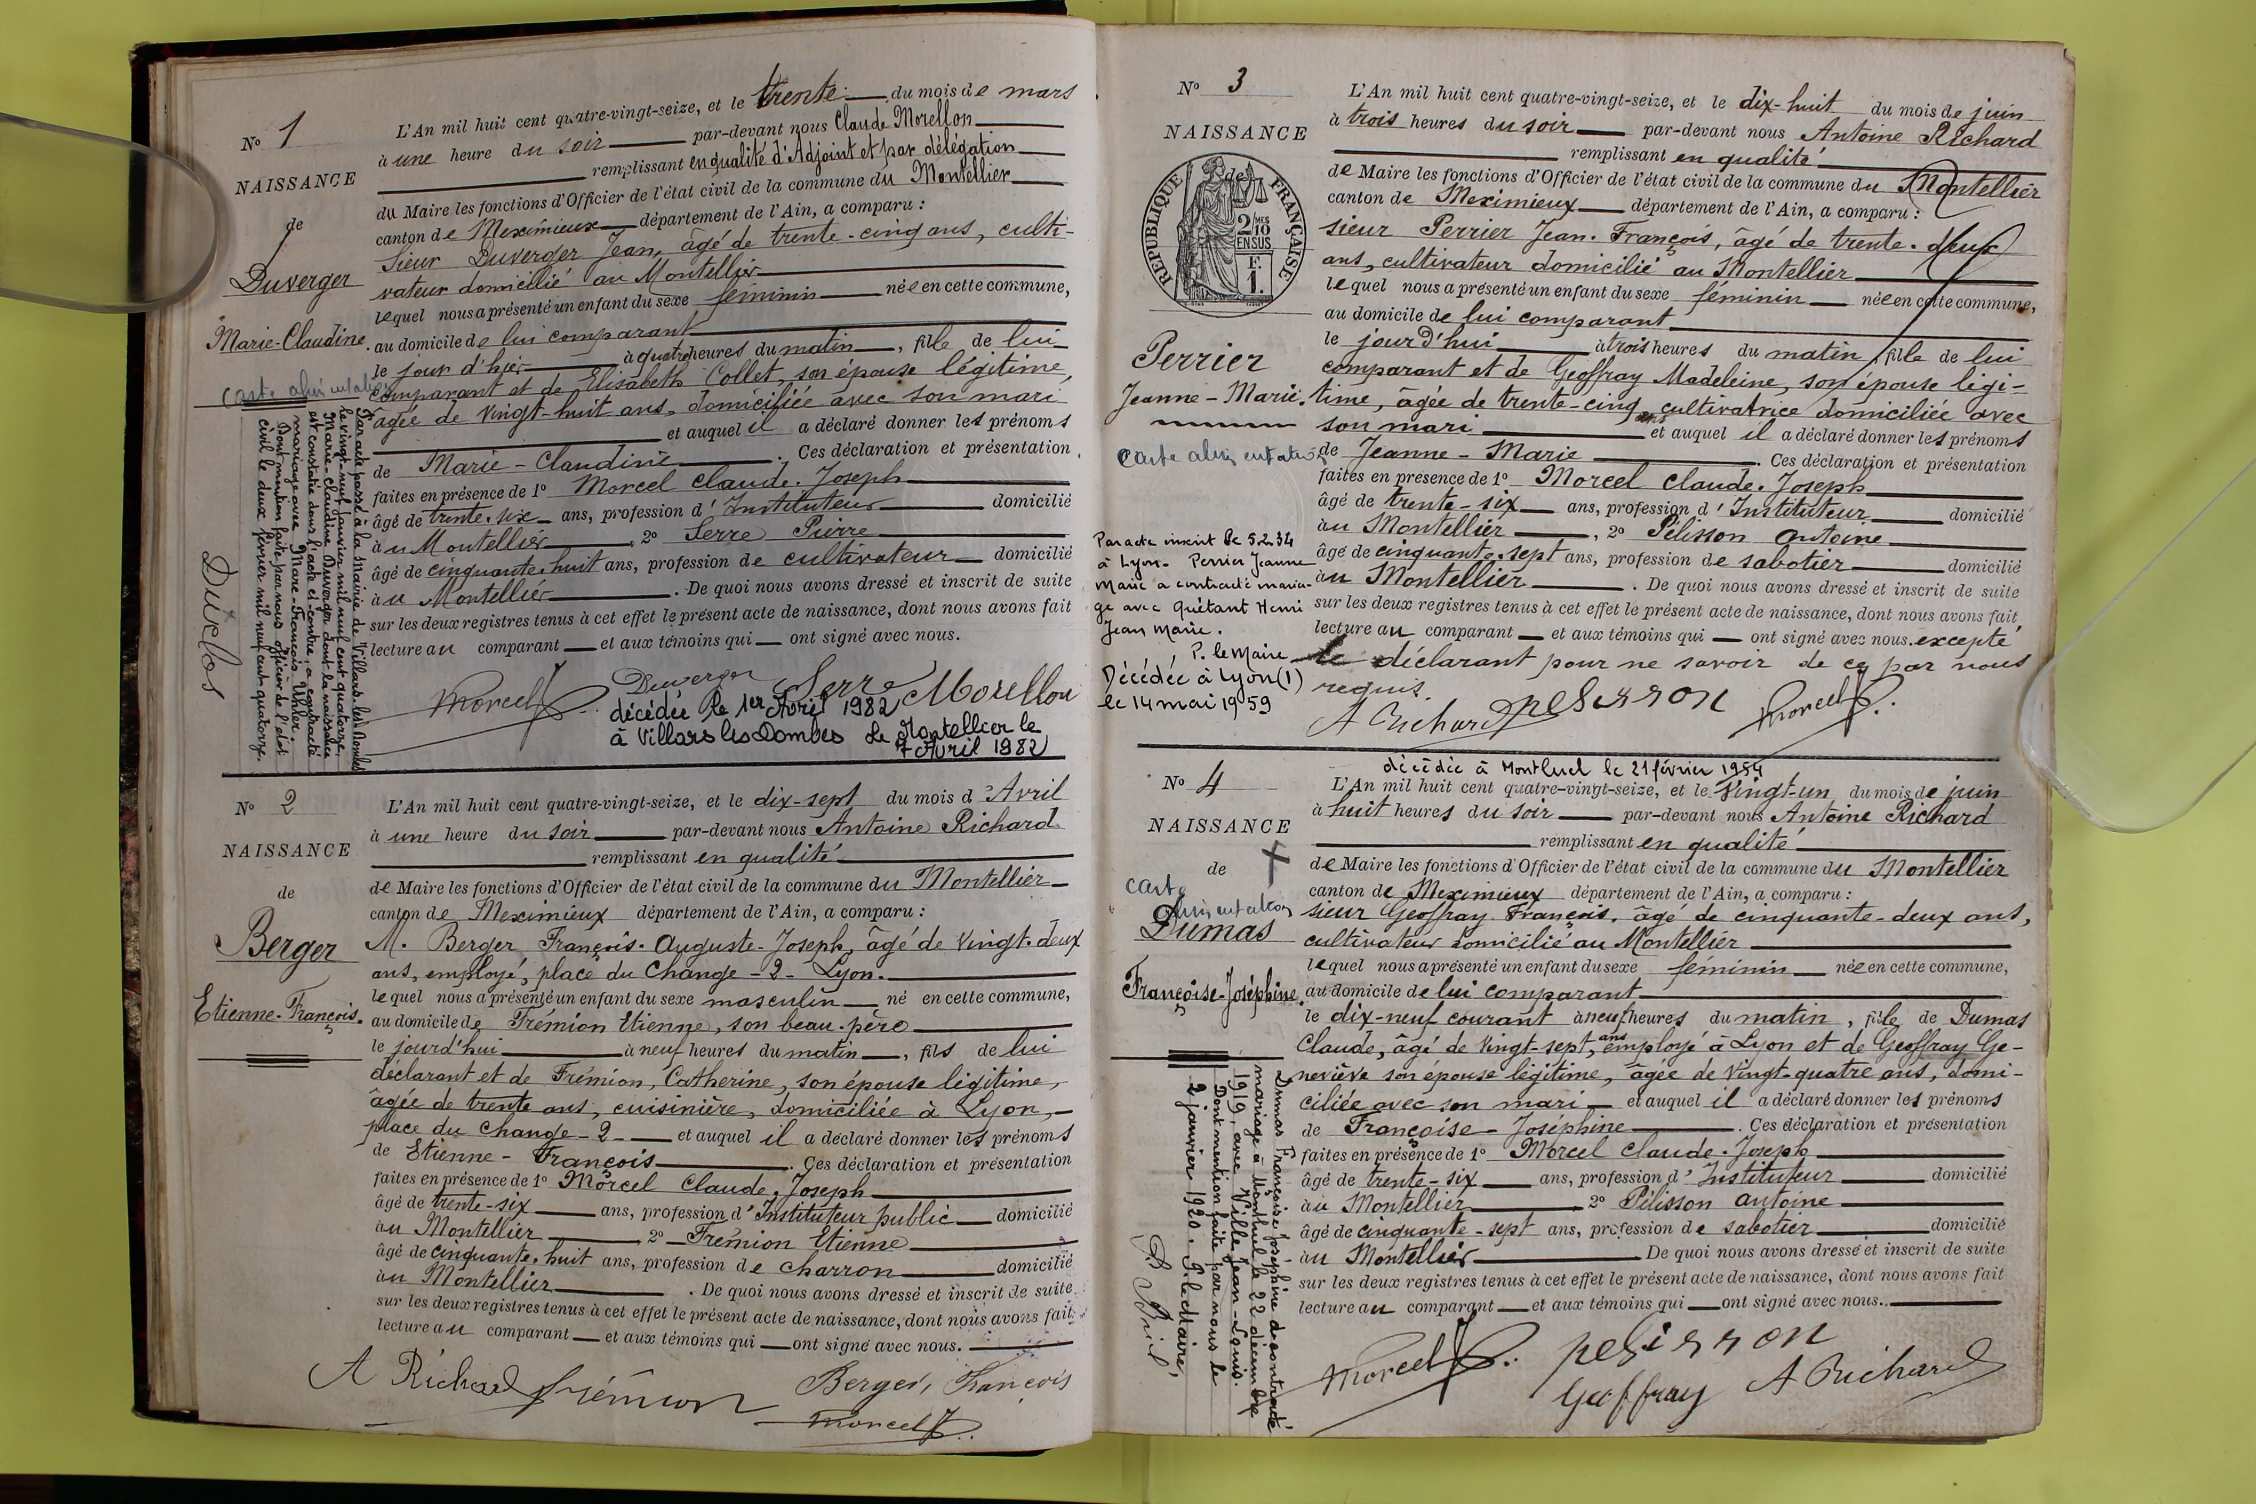 N° 1
NAISSANCE
de
Duverger
Marie-Claudine.
carte alimentation
L'An mil huit cent quatre-vingt-seize, et le trente du mois de mars
à une heure du soir par-devant nous Claude Morellon
remplissant en qualité d'Adjoint et par délégation
du Maire les fonctions d'Officier de l'état civil de la commune du Montellier
canton de Meximieux département de l'Ain, a comparu :
Sieur Duverger Jean, âgé de trente-cinq ans, culti-
vateur domicilié au Montellier
lequel nous a présenté un enfant du sexe féminin née en cette commune,
au domicile de lui comparant
le jour d'hier à quatre heures du matin, fille de lui
comparant et de Elisabeth Collet, son épouse légitime,
âgée de vingt-huit ans, domiciliée avec son mari
et auquel il a déclaré donner les prénoms
de Marie-Claudine. Ces déclaration et présentation
faites en présence de 1° Morcel Claude-Joseph
âgé de trente-six ans, profession d'Instituteur domicilié
au Montellier, 2° Serre Pierre
âgé de cinquante-huit ans, profession de cultivateur domicilié
au Montellier. De quoi nous avons dressé et inscrit de suite
sur les deux registres tenus à cet effet le présent acte de naissance, dont nous avons fait
lecture au comparant et aux témoins qui ont signé avec nous.
Morcel Duverger Serre Morellon
décédée le 1er Avril 1982
à Villars les Dombes Le Montellier le
7 Avril 1982
Par acte passé à la Mairie de Villars-les-Dombes
le vingt-neuf janvier mil neuf cent quatorze,
Marie-Claudine Duverger dont la naissance
est constatée dans l'acte ci-contre, a contracté
mariage avec Marc-François Uhler.
Dont mention faite par nous officier de l'état
civil le deux février mil neuf cent quatorze.
Duclos
N° 2
NAISSANCE
de
Berger
Etienne-François.
L'An mil huit cent quatre-vingt-seize, et le dix-sept du mois d'Avril
à une heure du soir par-devant nous Antoine Richard
remplissant en qualité
de Maire les fonctions d'Officier de l'état civil de la commune du Montellier
canton de Meximieux département de l'Ain, a comparu :
M. Berger François-Auguste-Joseph, âgé de vingt-deux
ans, employé, place du Change-2-Lyon.
lequel nous a présenté un enfant du sexe masculin né en cette commune,
au domicile de Frémion Etienne, son beau-père
le jourd'hui à neuf heures du matin, fils de lui
déclarant et de Frémion, Catherine, son épouse légitime,
âgée de trente ans, cuisinière, domiciliée à Lyon,
place du Change-2- et auquel il a déclaré donner les prénoms
de Etienne-François. Ces déclaration et présentation
faites en présence de 1° Morcel Claude-Joseph
âgé de trente-six ans, profession d'Instituteur public domicilié
au Montellier 2° Frémion Etienne
âgé de cinquante-huit ans, profession de charron domicilié
au Montellier. De quoi nous avons dressé et inscrit de suite
sur les deux registres tenus à cet effet le présent acte de naissance, dont nous avons fait
lecture au comparant et aux témoins qui ont signé avec nous.
A Richard Frémion Berger, François
Morcel
N° 3
NAISSANCE
de
RÉPUBLIQUE FRANÇAISE
2/10 MES EN SUS
F. 1.
Perrier
Jeanne-Marie.
carte alimentation
L'An mil huit cent quatre-vingt-seize, et le dix-huit du mois de juin
à trois heures du soir par-devant nous Antoine Richard
remplissant en qualité
de Maire les fonctions d'Officier de l'état civil de la commune du Montellier
canton de Meximieux département de l'Ain, a comparu :
sieur Perrier Jean-François, âgé de trente-deux
ans, cultivateur domicilié au Montellier
lequel nous a présenté un enfant du sexe féminin née en cette commune,
au domicile de lui comparant
le jourd'hui à trois heures du matin, fille de lui
comparant et de Geoffray Madeleine, son épouse légi-
time, âgée de trente-cinq ans cultivatrice domiciliée avec
son mari et auquel il a déclaré donner les prénoms
de Jeanne-Marie. Ces déclaration et présentation
faites en présence de 1° Morcel Claude-Joseph
âgé de trente-six ans, profession d'Instituteur domicilié
au Montellier, 2° Pélisson Antoine
âgé de cinquante-sept ans, profession de sabotier domicilié
au Montellier. De quoi nous avons dressé et inscrit de suite
sur les deux registres tenus à cet effet le présent acte de naissance, dont nous avons fait
lecture au comparant et aux témoins qui ont signé avec nous. excepté
le déclarant pour ne savoir de ce par nous
requis.
A Richard pelisson Morcel
Par acte inscrit le 5.2.34
à Lyon. Perrier Jeanne
Marie a contracté maria-
ge avec Quétant Henri
Jean Marie.
P. le Maire
Décédée à Lyon (1)
le 14 mai 1959
N° 4
NAISSANCE
de
carte
alimentation
Dumas
Françoise-Joséphine.
décédée à Montluel le 21 février 1954
L'An mil huit cent quatre-vingt-seize, et le vingt-un du mois de juin
à huit heures du soir par-devant nous Antoine Richard
remplissant en qualité
de Maire les fonctions d'Officier de l'état civil de la commune du Montellier
canton de Meximieux département de l'Ain, a comparu :
sieur Geoffray François, âgé de cinquante-deux ans,
cultivateur domicilié au Montellier
lequel nous a présenté un enfant du sexe féminin née en cette commune,
au domicile de lui comparant
le dix-neuf courant à neuf heures du matin, fille de Dumas
Claude, âgé de vingt-sept ans, employé à Lyon et de Geoffray Ge-
neviève son épouse légitime, âgée de vingt-quatre ans, domi-
ciliée avec son mari et auquel il a déclaré donner les prénoms
de Françoise-Joséphine. Ces déclaration et présentation
faites en présence de 1° Morcel Claude-Joseph
âgé de trente-six ans, profession d'Instituteur domicilié
au Montellier 2° Pélisson Antoine
âgé de cinquante-sept ans, profession de sabotier domicilié
au Montellier De quoi nous avons dressé et inscrit de suite
sur les deux registres tenus à cet effet le présent acte de naissance, dont nous avons fait
lecture au comparant et aux témoins qui ont signé avec nous..
Morcel pelisson
Geoffray A Richard
Dumas Françoise Joséphine a contracté
mariage à Montluel le 22 décembre
1919, avec Ville Jean-Louis.
Dont mention faite par nous le
2 janvier 1920. P. le Maire,